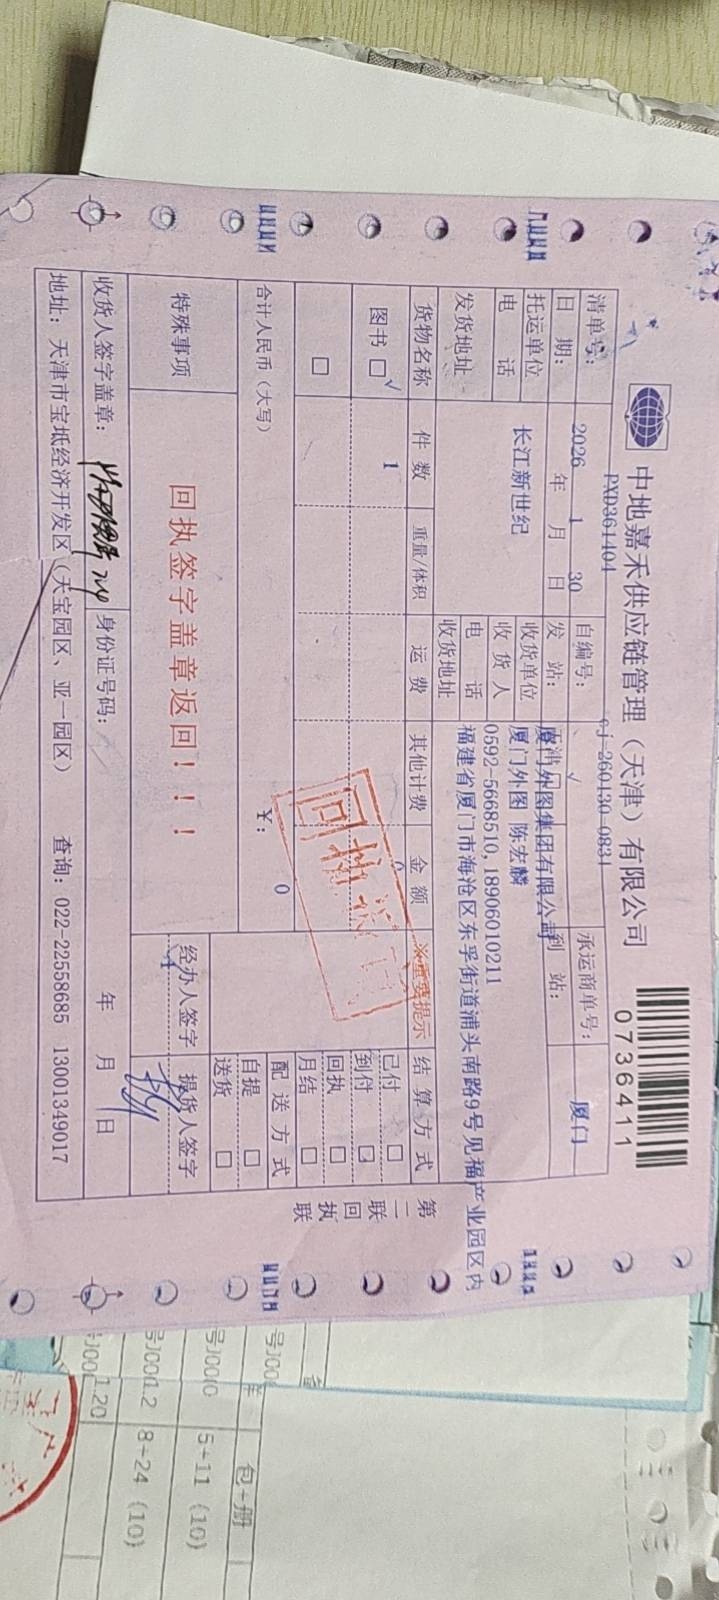 中地嘉禾供应链管理（天津）有限公司
0736411
清单号：
PXD361404
自编号：
cj-260130-0831
承运商单号：
日 期：
2026 年 1 月 30 日
发 站：
到 站：
厦门
托运单位
长江新世纪
收货单位
厦门外图集团有限公司
电 话
收 货 人
厦门外图 陈宏麟
电 话
0592-5668510, 18906010211
发货地址
收货地址
福建省厦门市海沧区东孚街道浦头南路9号见福产业园区内
货物名称 件 数 重量/体积 运 费 其他计费 金 额 ※重要提示 结 算 方 式
图书 □ √
1
0
已付 □
到付 □
回执 □
月结 □
□
合计人民币（大写）
￥： 0
配 送 方 式
自提 □
送货 □
特殊事项
回执签字盖章返回！！！
经办人签字
提货人签字
收货人签字盖章：
身份证号码：
年 月 日
地址：天津市宝坻经济开发区（天宝园区、亚一园区）
查询：022-22558685 13001349017
第二联 回执联
包÷册
5÷11 (10)
8÷24 (10)